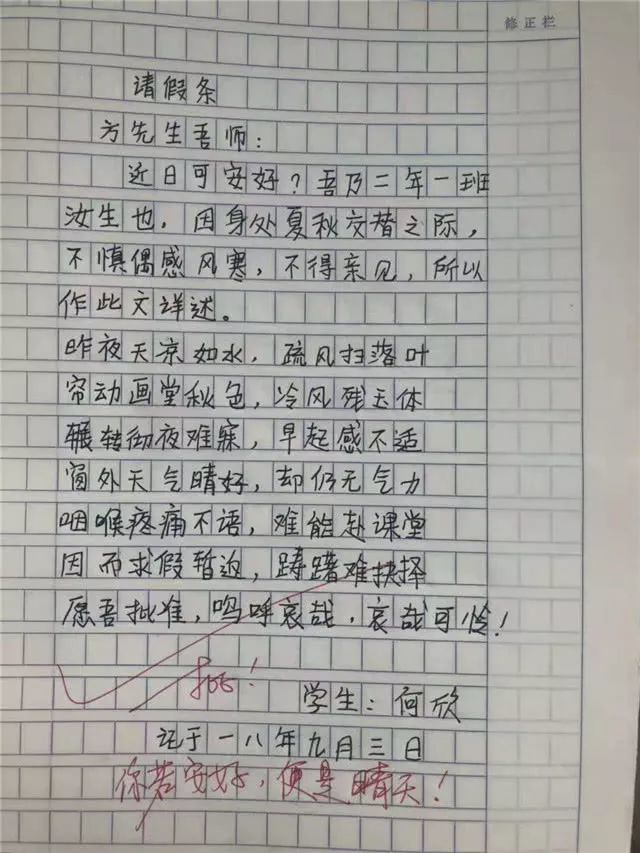 修正栏
请假条
方先生吾师：
近日可安好？吾乃二年一班
汝生也，因身处夏秋交替之际，
不慎偶感风寒，不得亲见，所以
作此文详述。
昨夜天凉如水，疏风扫落叶
帘动画堂秋色，冷风残玉体
辗转彻夜难寐，早起感不适
窗外天气晴好，却仍无气力
咽喉疼痛不语，难能赴课堂
因而求假暂返，踌躇难抉择
愿吾批准，呜呼哀哉，哀哉可怜！
批！
学生：何欣
记于一八年九月三日
你若安好，便是晴天！